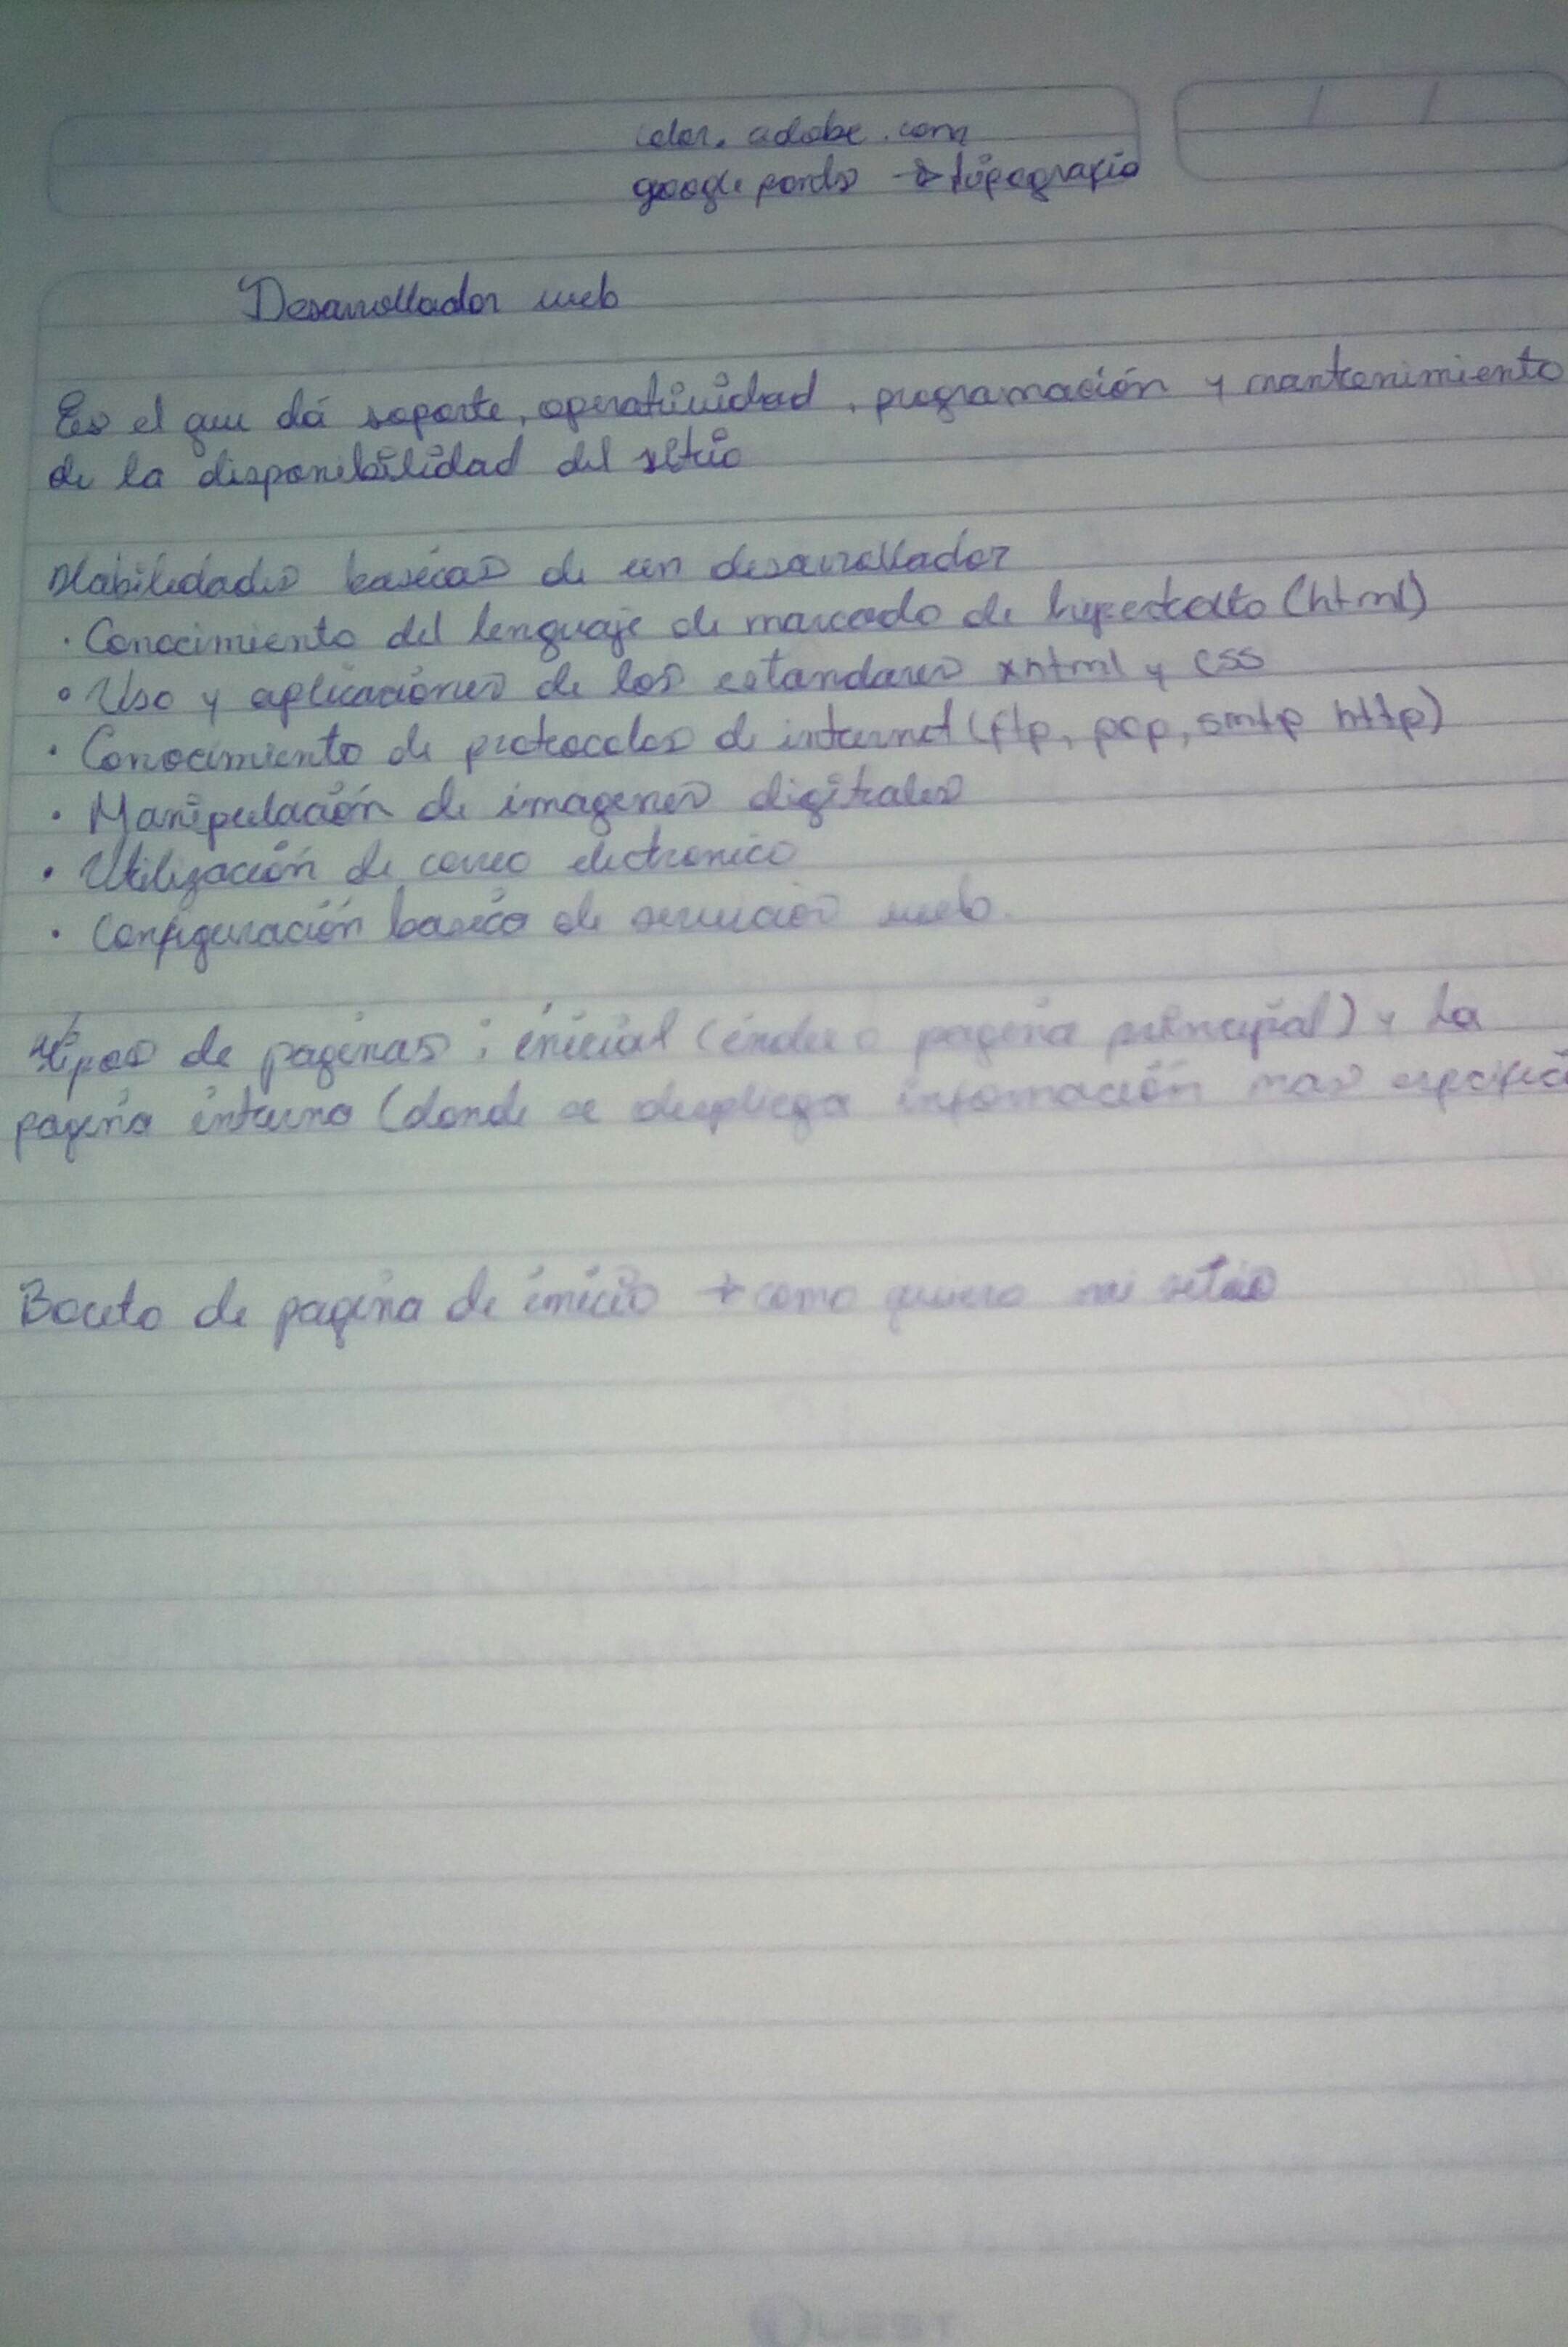 color.adobe.com
google fonds → tipografia
Desarrollador web
Es el que dá soporte, operatividad, programación y mantenimiento
de la disponibilidad del sitio
Habilidades basicas de un desarrollador
· Conocimiento del lenguaje de marcado de hipertexto (html)
· Uso y aplicaciónes de los estandares xhtml y CSS
· Conocimiento de protocolos de internet (ftp, pop, smtp http)
· Manipulación de imagenes digitales
· Utilización de correo electronico
· Configuración basica de servicios web.
tipos de paginas: inicial (index o pagina principal) y la
pagina interna (donde se despliega información mas especifica
Boceto de pagina de inicio → como quiero mi sitio
QUEST